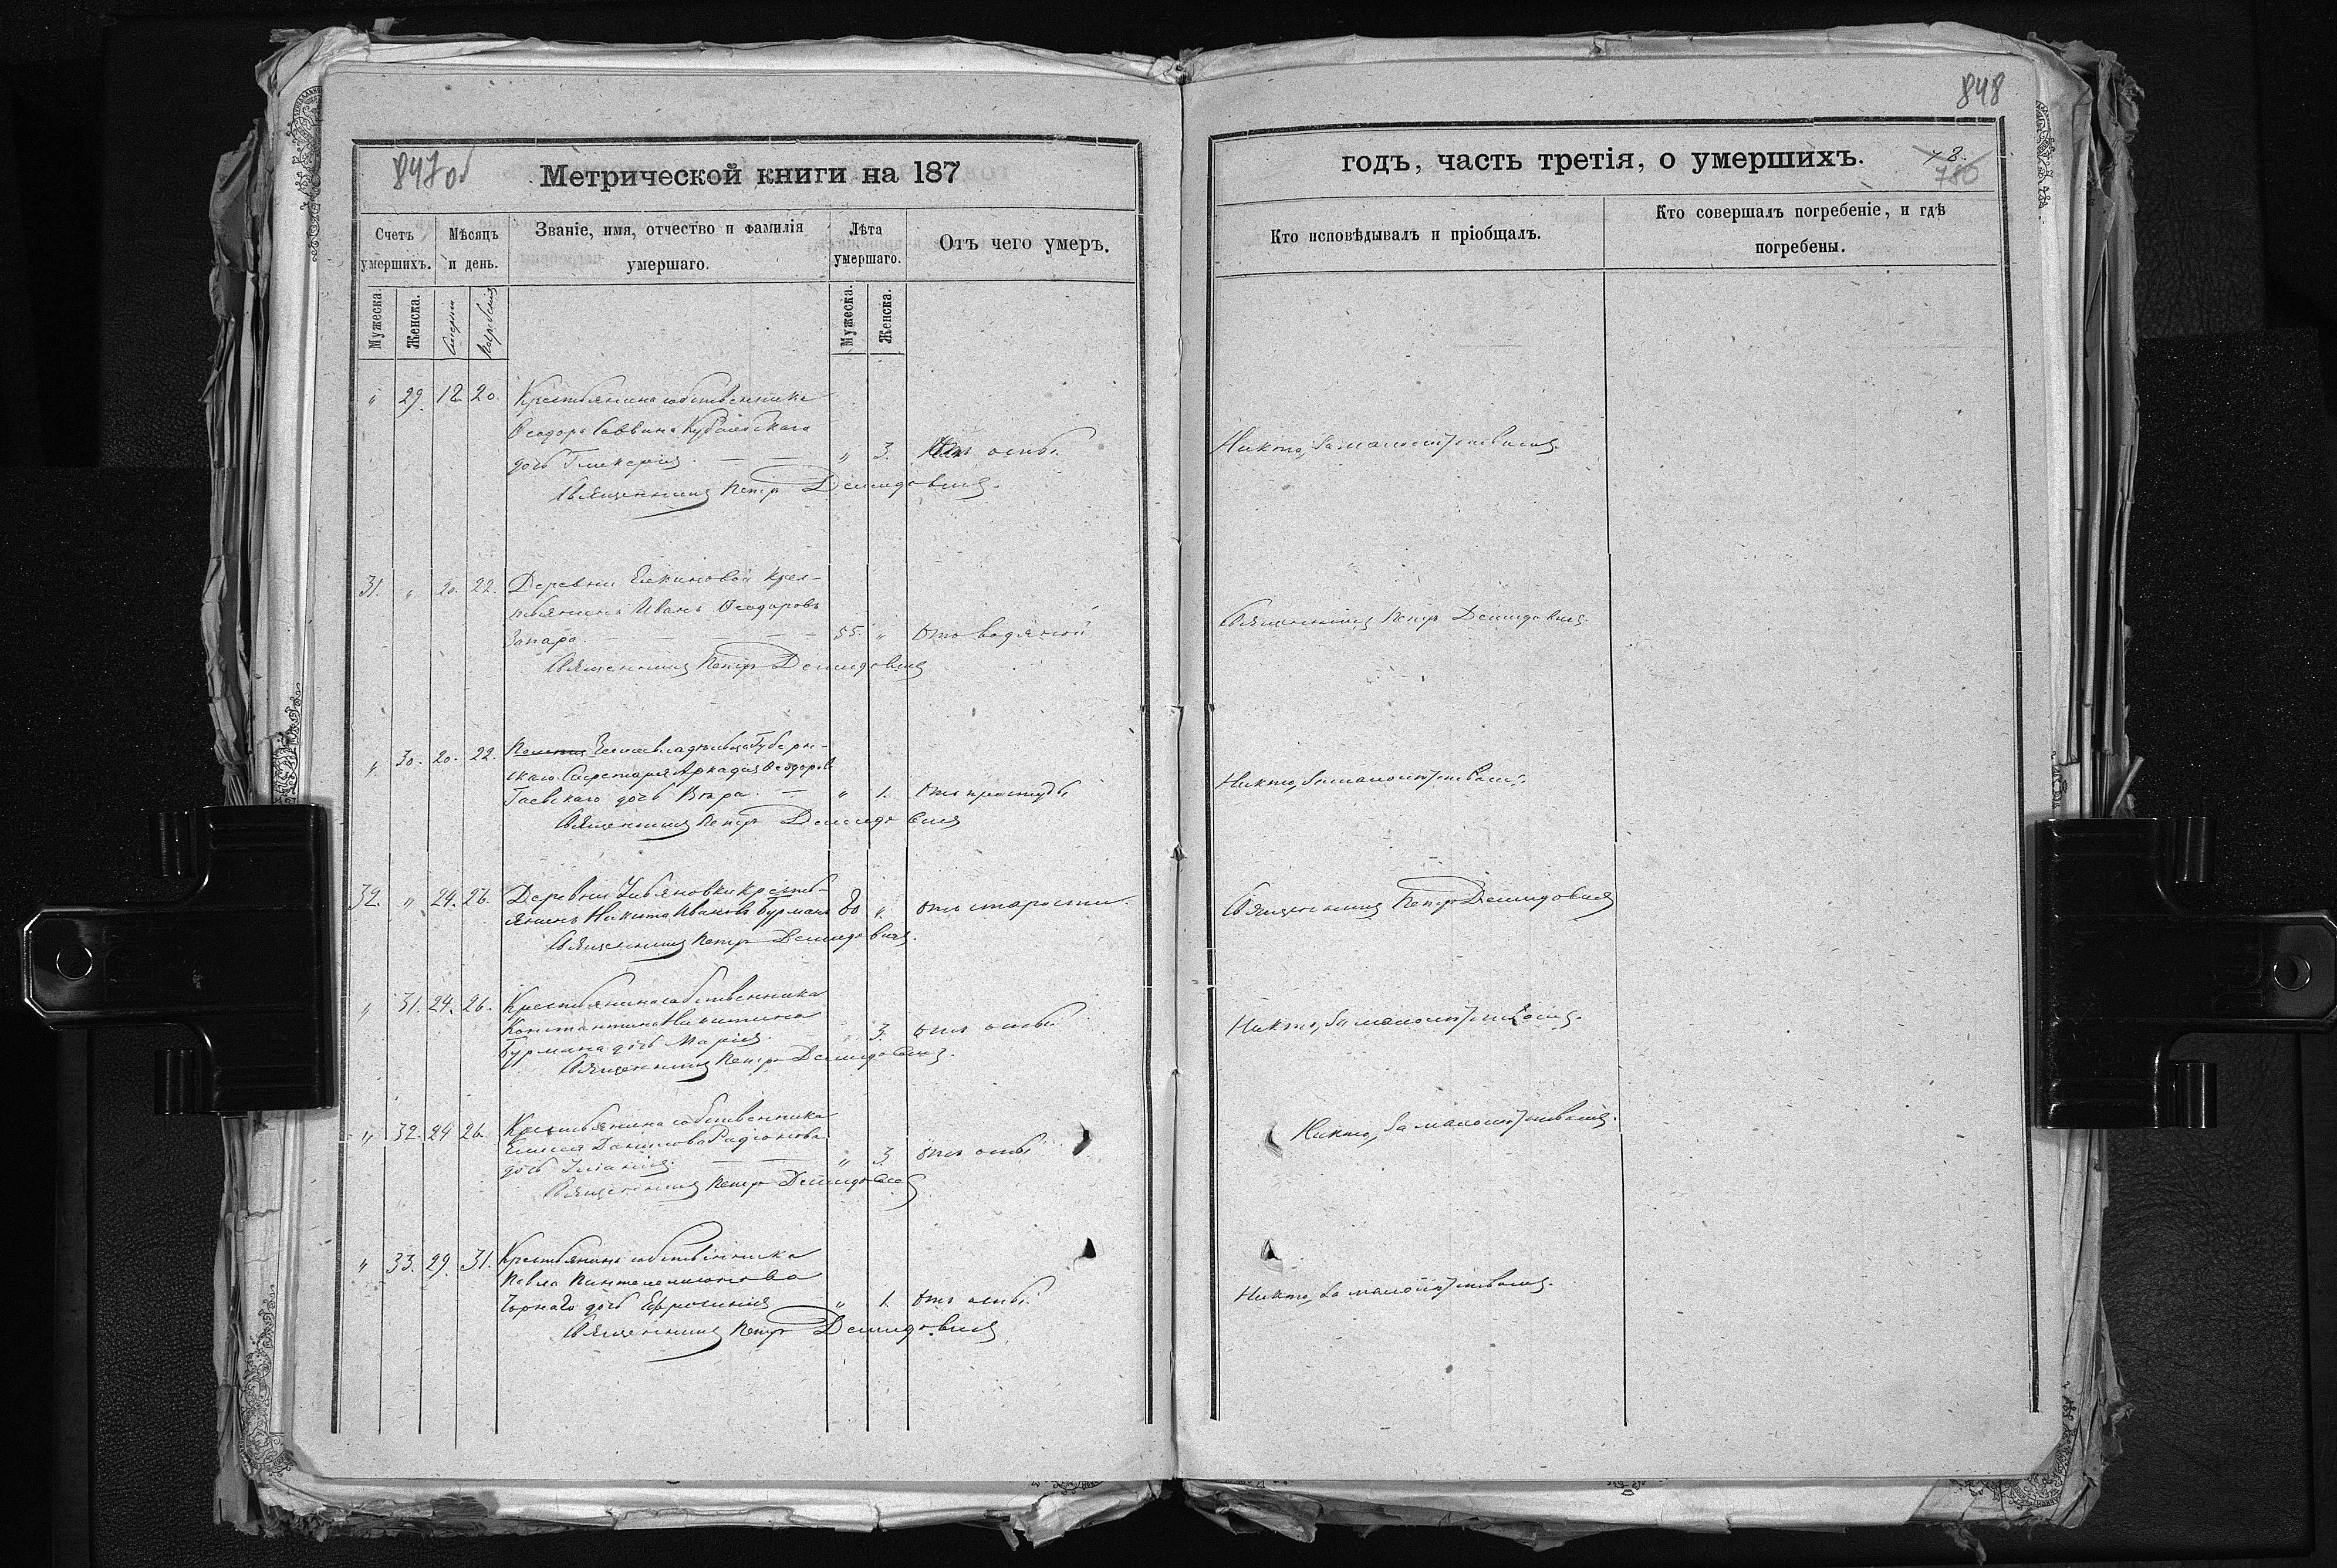 847об
Метрической книги на 187
Счетъ умершихъ.
Мѣсяцъ и день.
Званіе, имя, отчество и фамилія умершаго.
Лѣта умершаго.
Отъ чего умеръ.
Мужеска.
Женска.
Смерти
Погребенія
Мужеска.
Женска.
" 29. 18 20. Крестьянина собственника
Ѳеодора Саввина
дочь Гликерія. — — " 3. Отъ оспы.
Священникъ Петръ Демидовичъ.
31. " 20. 22. Деревни Елкиновой крес-
тьянинъ Иванъ Ѳеодоровъ
Запара. — — — — 55. " Отъ водяной
Священникъ Петръ Демидовичъ
" 30. 20. 22. Землевладѣльца Губерн-
скаго Секретаря Аркадія Ѳеодоров
Гаевскаго дочь Вѣра. — " 1. Отъ простуды
Священникъ Петръ Демидовичъ
32. " 24. 26. Деревни Ульяновки кресть-
янинъ Никита Ивановъ Бурманъ 80 ". отъ старости.
Священникъ Петръ Демидовичъ.
" 31. 24. 26. Крестьянина собственника
Константина Никитина
Бурмана дочь Марія. " 3. отъ оспы.
Священникъ Петръ Демидовичъ.
" 32. 24 26. Крестьянина собственника
Елисея Данилова Радіонова
дочь Уліанія. — — " 3. отъ оспы
Священникъ Петръ Демидовичъ
" 33. 29. 31. Крестьянина собственника
Павла Пантелеимонова
Чорнаго дочь Ефросинія " 1. Отъ оспы.
Священникъ Петръ Демидовичъ
848
годъ, часть третія, о умершихъ.
780
Кто исповѣдывалъ и пріобщалъ.
Кто совершалъ погребеніе, и гдѣ погребены.
Никто, за
Священникъ Петръ Демидовичъ.
Никто, за
Священникъ Петръ Демидовичъ
Никто, за
Никто, за
Никто, за